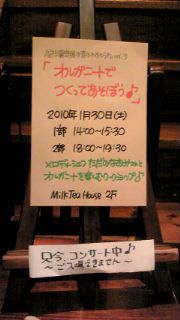 「オルガニートで
つくってあそぼう♪」
2010年1月30日(土)
1部 14:00〜15:30
2部 18:00〜19:30
オルガニートを楽しむワークショップ♪
Milk Tea House 2F
只今、コンサート中♪
〜ご入場できません〜